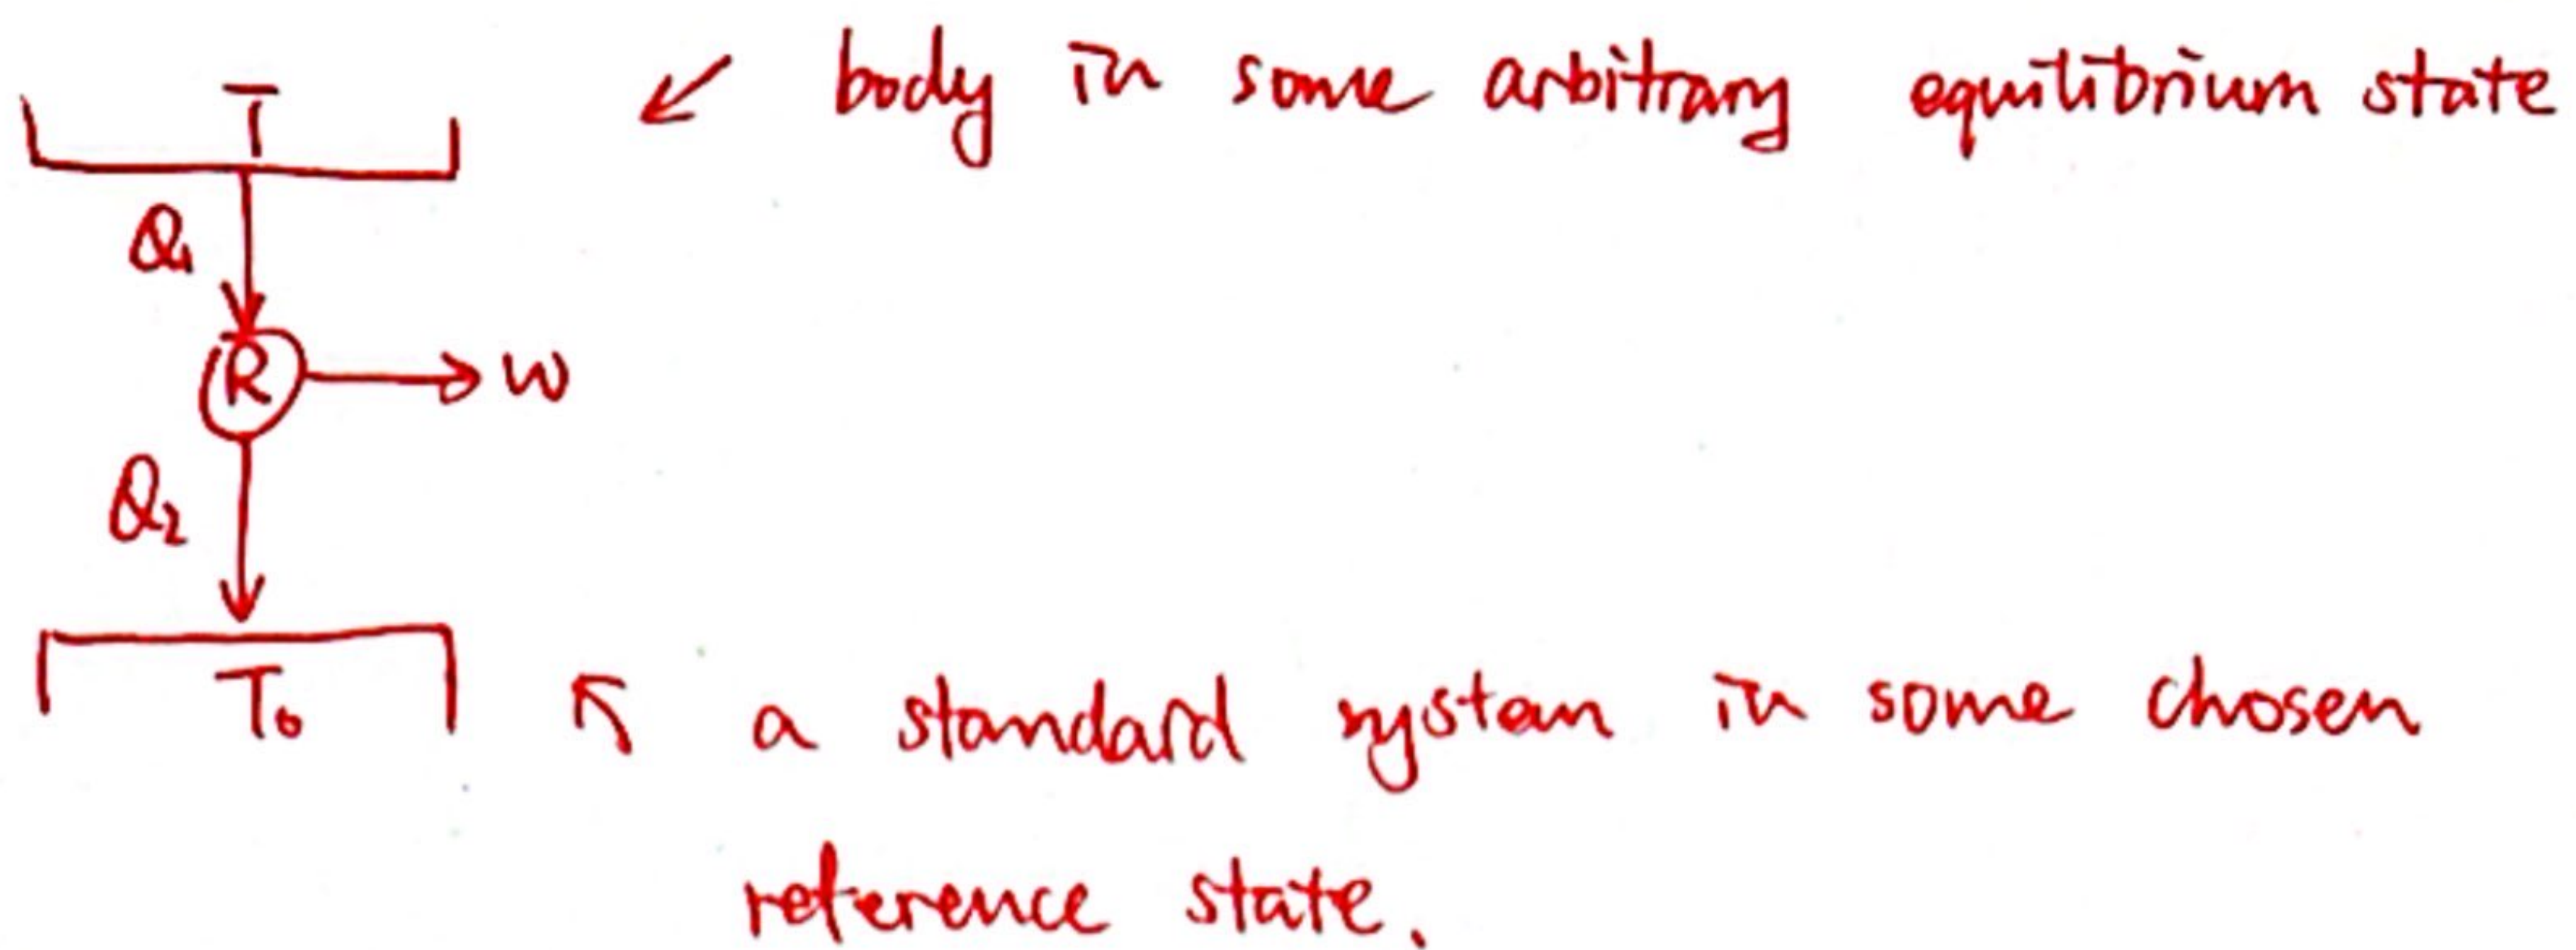 T
↙ body in some arbitrary equilibrium state
Q₁
R → W
Q₂
T₀
↖ a standard system in some chosen
reference state.